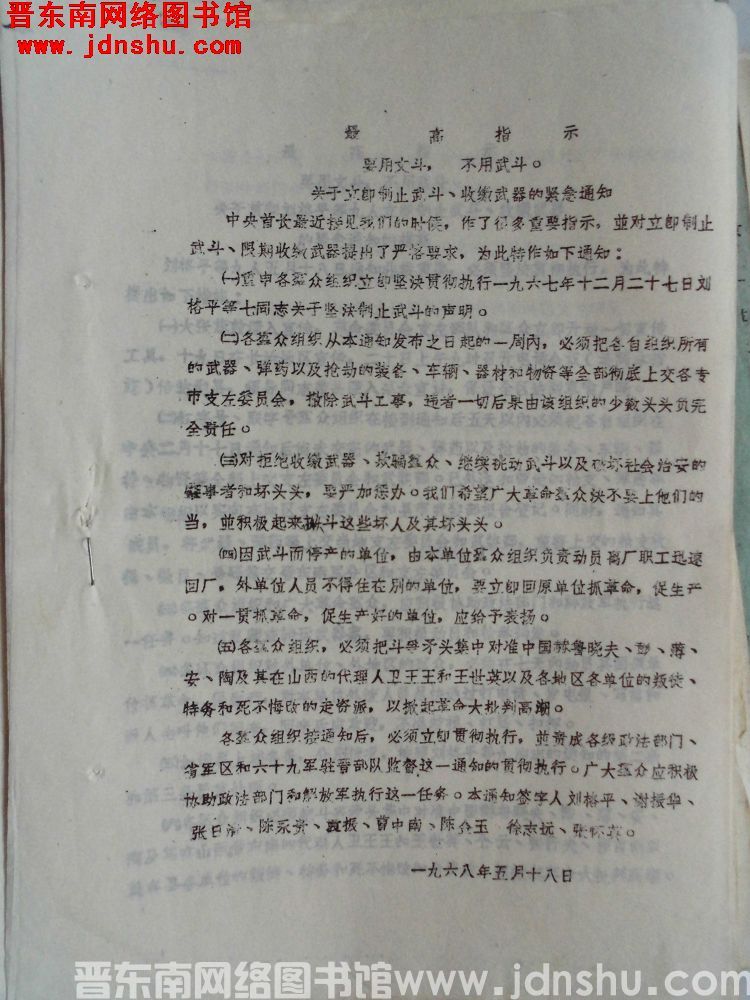 晋东南网络图书馆
www.jdnshu.com
最高指示
要用文斗，不用武斗。
关于立即制止武斗、收缴武器的紧急通知
中央首长最近接见我们的时候，作了很多重要指示，並对立即制止
武斗、限期收缴武器提出了严格要求，为此特作如下通知：
㈠重申各群众组织立即坚决贯彻执行一九六七年十二月二十七日刘
格平等七同志关于坚决制止武斗的声明。
㈡各群众组织从本通知发布之日起的一周内，必须把各自组织所有
的武器、弹药以及抢劫的装备、车辆、器材和物资等全部彻底上交各专
市支左委员会，撤除武斗工事，违者一切后果由该组织的少数头头负完
全责任。
㈢对拒绝收缴武器、欺骗群众、继续挑动武斗以及破坏社会治安的
肇事者和坏头头，要严加惩办。我们希望广大革命群众决不要上他们的
当，並积极起来揪斗这些坏人及其坏头头。
㈣因武斗而停产的单位，由本单位群众组织负责动员离厂职工迅速
回厂，外单位人员不得住在别的单位，要立即回原单位抓革命，促生产
。对一贯抓革命，促生产好的单位，应给予表扬。
㈤各群众组织，必须把斗争矛头集中对准中国赫鲁晓夫、彭、薄、
安、陶及其在山西的代理人卫王王和王世英以及各地区各单位的叛徒、
特务和死不悔改的走资派，以掀起革命大批判高潮。
各群众组织接通知后，必须立即贯彻执行，並责成各级政法部门、
省军区和六十九军驻晋部队监督这一通知的贯彻执行。广大群众应积极
协助政法部门和解放军执行这一任务。本通知签字人刘格平、谢振华、
张日清、陈永贵、袁振、曹中南、陈金玉 徐志远、张怀英。
一九六八年五月十八日
晋东南网络图书馆www.jdnshu.com